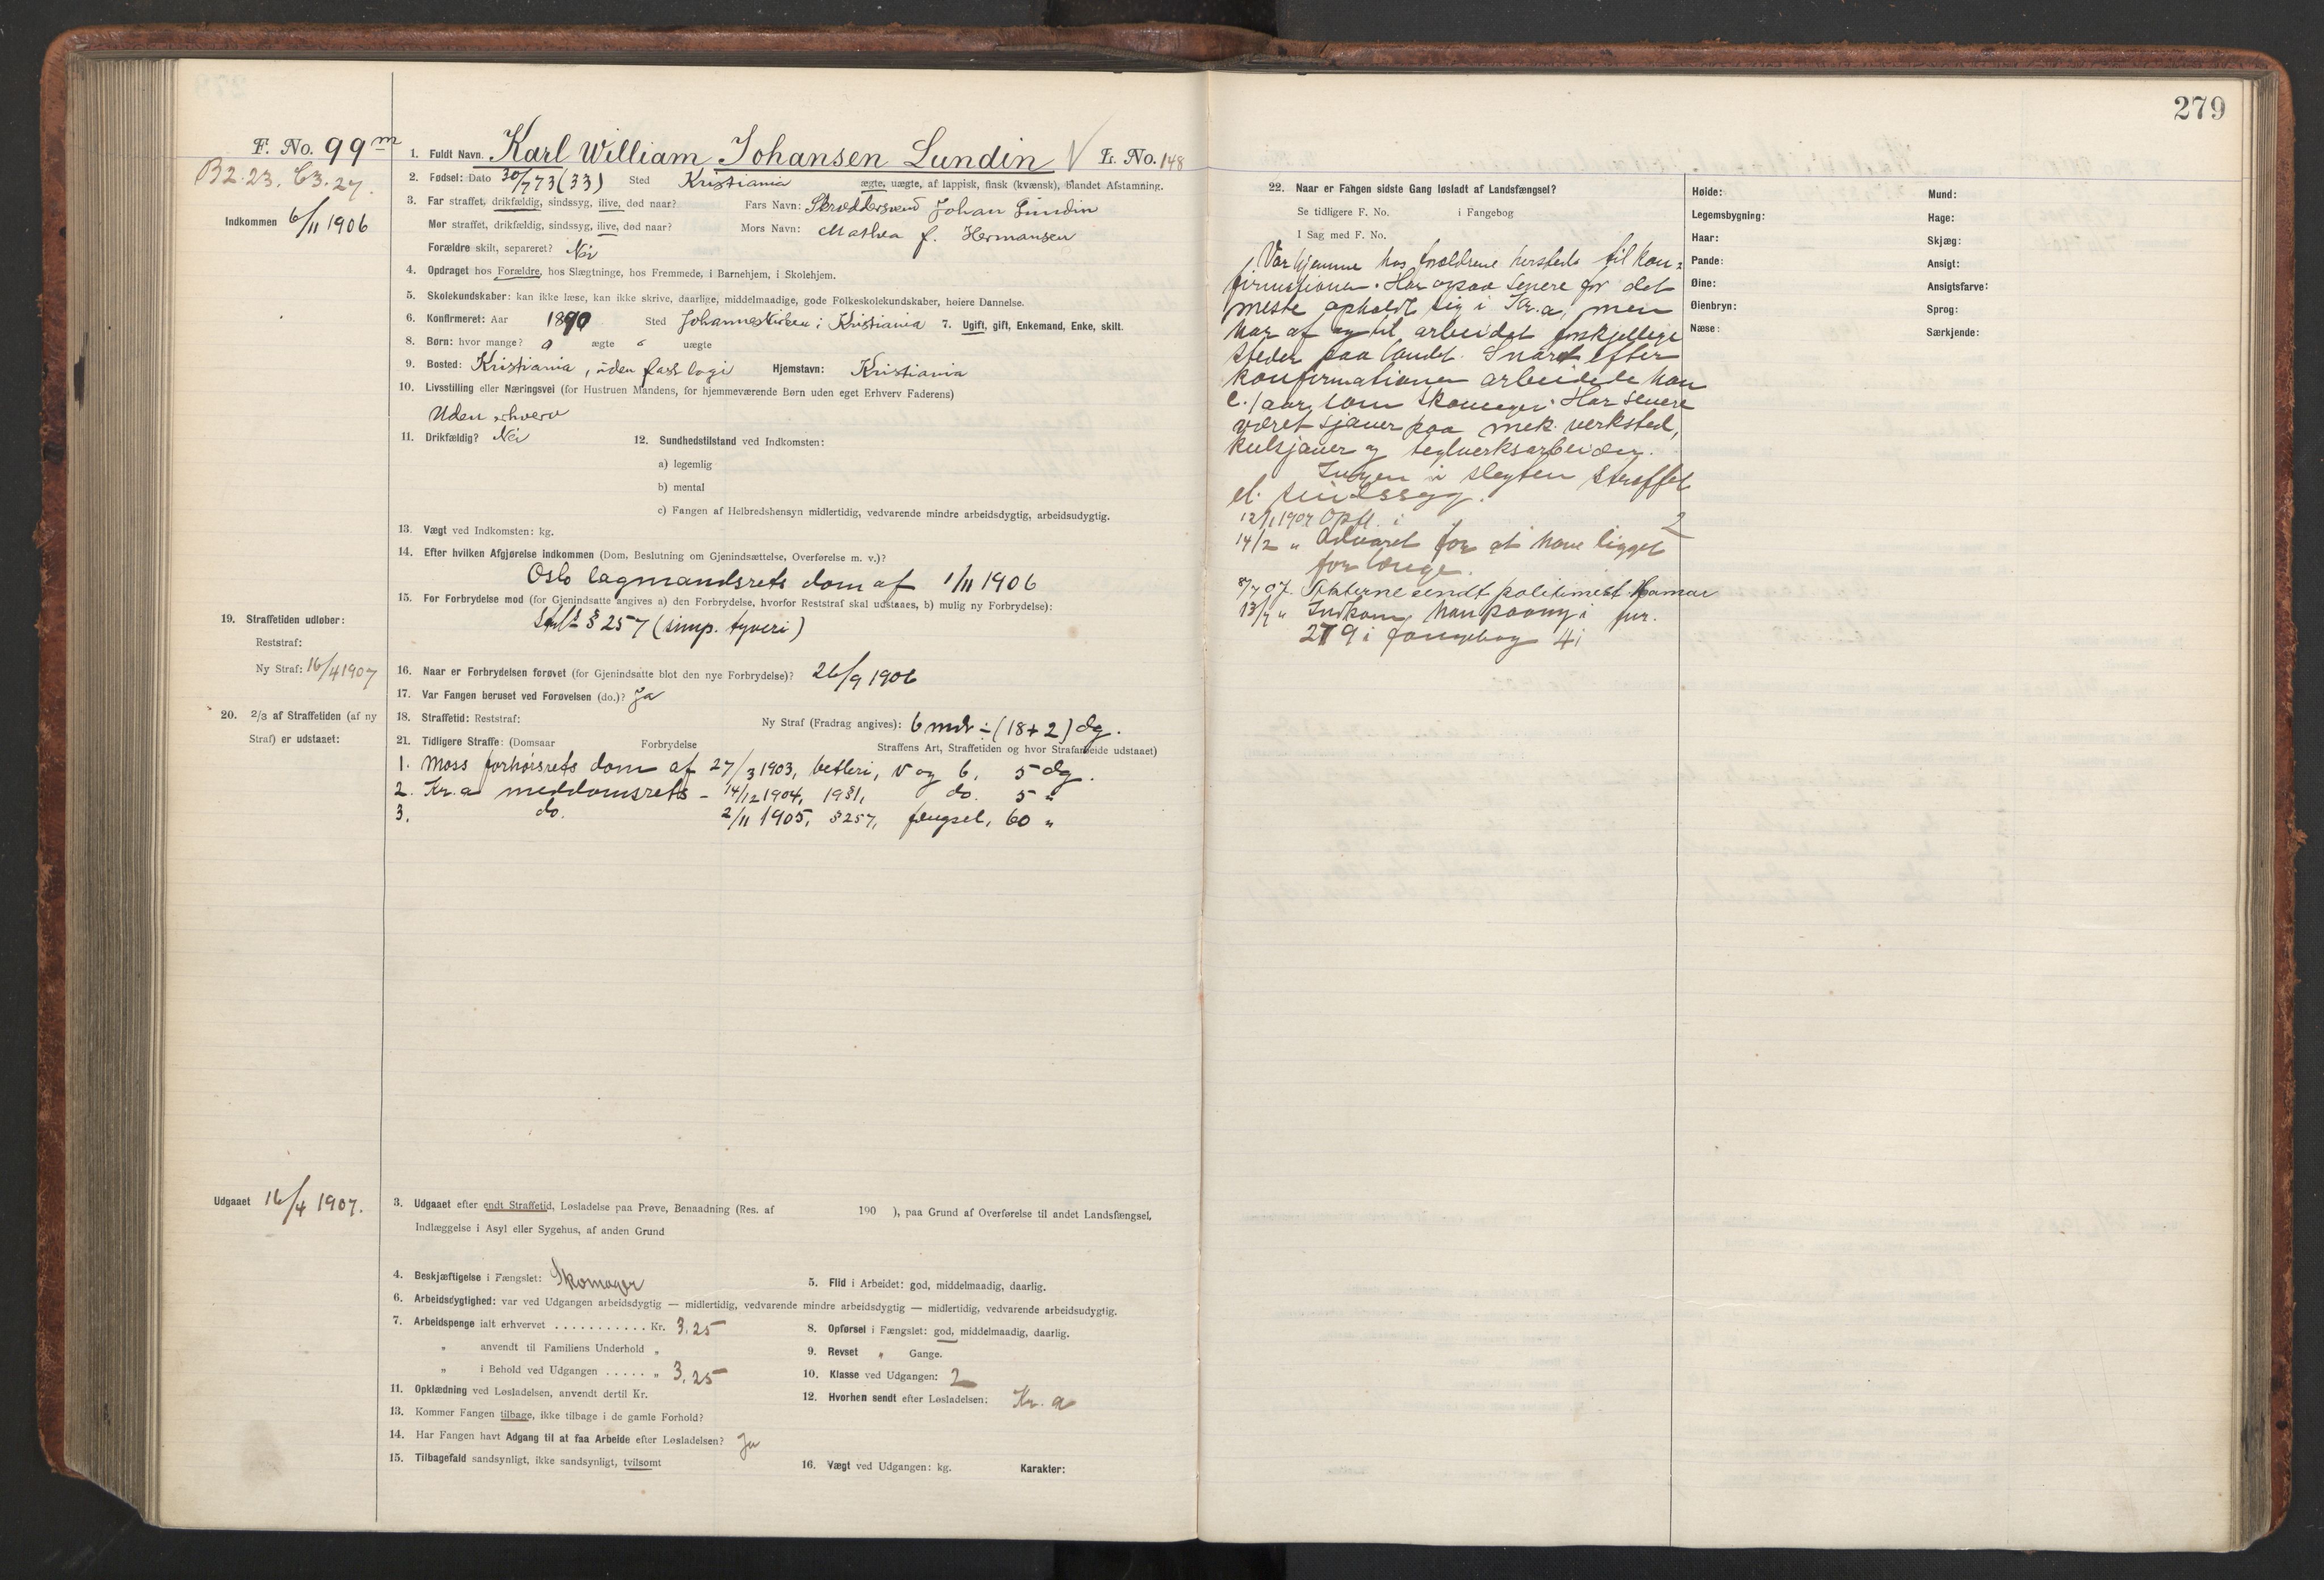 279
F. No. 99 m
B2.23. C3.27.
Indkommen 6/11 1906
1. Fuldt Navn. Karl William Johansen Lundin V L. No. 148
2. Fødsel: Dato 30/7 73 (33) Sted Kristiania ægte, uægte, af lappisk, finsk (kvænsk), blandet Afstamning.
3. Far straffet, drikfældig, sindssyg, ilive, død naar? Fars Navn: Skræddersvend Johan Lundin
Mor straffet, drikfældig, sindssyg, ilive, død naar? Mors Navn: Mathea f. Hermansen
Forældre skilt, separeret? Nei
4. Opdraget hos Forældre, hos Slægtninge, hos Fremmede, i Barnehjem, i Skolehjem.
5. Skolekundskaber: kan ikke læse, kan ikke skrive, daarlige, middelmaadige, gode Folkeskolekundskaber, høiere Dannelse.
6. Konfirmeret: Aar 1890 Sted Johanneskirken i Kristiania 7. Ugift, gift, Enkemand, Enke, skilt.
8. Børn: hvor mange? 0 ægte 0 uægte
9. Bosted: Kristiania, uden fast logi Hjemstavn: Kristiania
10. Livsstilling eller Næringsvei (for Hustruen Mandens, for hjemmeværende Børn uden eget Erhverv Faderens)
Uden erhverv
11. Drikfældig? Nei 12. Sundhedstilstand ved Indkomsten:
a) legemlig
b) mental
c) Fangen af Helbredshensyn midlertidig, vedvarende mindre arbeidsdygtig, arbeidsudygtig.
13. Vægt ved Indkomsten: kg.
14. Efter hvilken Afgjørelse indkommen (Dom, Beslutning om Gjenindsættelse, Overførelse m. v.)?
Oslo lagmandsrets dom af 1/11 1906
15. For Forbrydelse mod (for Gjenindsatte angives a) den Forbrydelse, hvorfor Reststraf skal udstaaes, b) mulig ny Forbrydelse):
Strfl § 257 (simp. tyveri)
19. Straffetiden udløber:
Reststraf:
Ny Straf: 16/4 1907
16. Naar er Forbrydelsen forøvet (for Gjenindsatte blot den nye Forbrydelse)? 26/9 1906
17. Var Fangen beruset ved Forøvelsen (do.)? Ja
20. 2/3 af Straffetiden (af ny
Straf) er udstaaet:
18. Straffetid: Reststraf: Ny Straf (Fradrag angives): 6 mdr ÷ (18+2) dg.
21. Tidligere Straffe: (Domsaar Forbrydelse Straffens Art, Straffetiden og hvor Strafarbeide udstaaet)
1. Moss forhørsrets dom af 27/3 1903, betleri, v og b, 5 dg.
2. Kr.a meddomsrets - 14/12 1904, 19§1, do. 5 "
3. do. 2/11 1905, §257, fengsel, 60 "
Udgaaet 16/4 1907.
3. Udgaaet efter endt Straffetid, Løsladelse paa Prøve, Benaadning (Res. af 190 ), paa Grund af Overførelse til andet Landsfængsel,
Indlæggelse i Asyl eller Sygehus, af anden Grund
4. Beskjæftigelse i Fængslet: Skomager 5. Flid i Arbeidet: god, middelmaadig, daarlig.
6. Arbeidsdygtighed: var ved Udgangen arbeidsdygtig — midlertidig, vedvarende mindre arbeidsdygtig — midlertidig, vedvarende arbeidsudygtig.
7. Arbeidspenge ialt erhvervet . . . . . . . . . . . Kr. 3.25 8. Opførsel i Fængslet: god, middelmaadig, daarlig.
" anvendt til Familiens Underhold " 9. Revset " Gange.
" i Behold ved Udgangen . . . . . . " 3.25 10. Klasse ved Udgangen: 2
11. Opklædning ved Løsladelsen, anvendt dertil Kr. 12. Hvorhen sendt efter Løsladelsen: Kr. a
13. Kommer Fangen tilbage, ikke tilbage i de gamle Forhold?
14. Har Fangen havt Adgang til at faa Arbeide efter Løsladelsen? Ja
15. Tilbagefald sandsynligt, ikke sandsynligt, tvilsomt 16. Vægt ved Udgangen: kg. Karakter:
22. Naar er Fangen sidste Gang løsladt af Landsfængsel?
Se tidligere F. No. i Fangebog
I Sag med F. No.
Var hjemme hos forældrene hersteds til kon=
firmationen. Har ogsaa senere for det
meste opholdt sig i Kr.a, men
har af og til arbeidet forskjellige
steder paa landet. Snart efter
konfirmationen arbeidede han
c. 1 aar som skomager. Har senere
været sjauer paa mek. verksted,
kulsjauer og teglverksarbeider.
Ingen i slegten straffet
el. sindssyg.
12/1 1907 Opfl. i 2
14/2 " Advaret for at have ligget
for længe.
8/7 07. Akterne sendt politimest. Hamar
13/7 " Indkom han paany i fnr.
279 i fangebog 4i
Høide:
Legemsbygning:
Haar:
Pande:
Øine:
Øienbryn:
Næse:
Mund:
Hage:
Skjæg:
Ansigt:
Ansigtsfarve:
Sprog:
Særkjende: